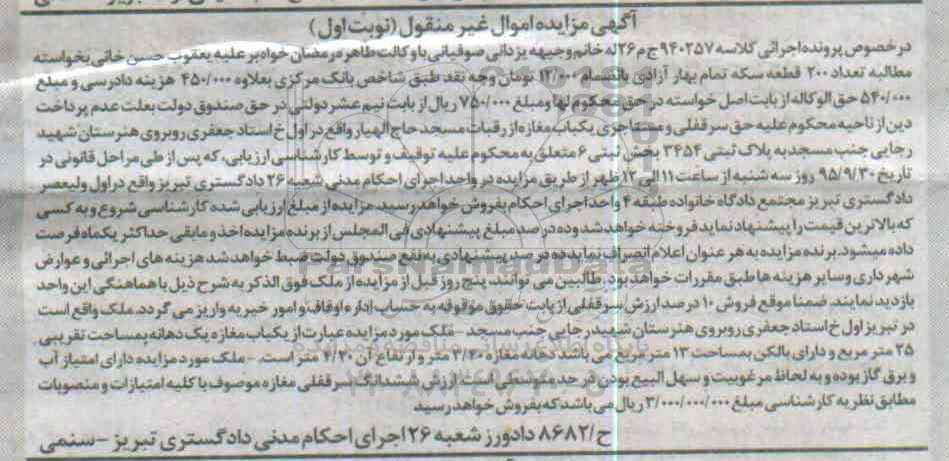 آگهی مزایده اموال غیر منقول (نوبت اول)
درخصوص پرونده اجرائی کلاسه ۹۴۰۲۵۷ ج م ۲۶ له خانم وجیهه یزدانی صوفیانی با وکالت طاهر مرمضان خواه بر علیه یعقوب حسن خانی بخواسته
مطالبه تعداد ۲۰۰ قطعه سکه تمام بهار آزادی بانضمام ۱۲/۰۰۰ تومان وجه نقد طبق شاخص بانک مرکزی بعلاوه ۴۵۰/۰۰۰ هزینه دادرسی و مبلغ
۵۴۰/۰۰۰ حق الوکاله از بابت اصل خواسته در حق محکوم لها و مبلغ ۷۵۰/۰۰۰ ریال از بابت نیم عشر دولتی در حق صندوق دولت بعلت عدم پرداخت
دین از ناحیه محکوم علیه حق سرقفلی و مستاجری یکباب مغازه از رقبات مسجد حاج الهیار واقع در اول خ استاد جعفری روبروی هنرستان شهید
رجایی جنب مسجد به پلاک ثبتی ۳۴۵۴ بخش ثبتی ۶ متعلق به محکوم علیه توقیف و توسط کارشناسی ارزیابی، که پس از طی مراحل قانونی در
تاریخ ۹۵/۹/۳۰ روز سه شنبه از ساعت ۱۱ الی ۱۲ ظهر از طریق مزایده در واحد اجرای احکام مدنی شعبه ۲۶ دادگستری تبریز واقع در اول ولیعصر
دادگستری تبریز مجتمع دادگاه خانواده طبقه ۴ واحد اجرای احکام بفروش خواهد رسید. مزایده از مبلغ ارزیابی شده کارشناسی شروع و به کسی
که بالاترین قیمت را پیشنهاد نماید فروخته خواهد شد و ده درصد مبلغ پیشنهادی فی المجلس از برنده مزایده اخذ و مابقی حداکثر یکماه فرصت
داده میشود. برنده مزایده به هر عنوان اعلام انصراف نماید ده درصد پیشنهادی به نفع صندوق دولت ضبط خواهد شد هزینه های اجرائی و عوارض
شهرداری و سایر هزینه ها طبق مقررات خواهد بود. طالبین می توانند، پنج روز قبل از مزایده از ملک فوق الذکر به شرح ذیل با هماهنگی این واحد
بازدید نمایند. ضمنا موقع فروش ۱۰ درصد ارزش سرقفلی از بابت حقوق موقوفه به حساب اداره اوقاف و امور خیریه واریز می گردد. ملک واقع است
در تبریز اول خ استاد جعفری روبروی هنرستان شهید رجایی جنب مسجد - ملک مورد مزایده عبارت از یکباب مغازه یک دهانه بمساحت تقریبی
۲۵ متر مربع و دارای بالکن بمساحت ۱۳ متر مربع می باشد دهانه مغازه ۳/۲۰ متر و ارتفاع آن ۴/۲۰ متر است. - ملک مورد مزایده دارای امتیاز آب
و برق گاز بوده و به لحاظ مرغوبیت و سهل البیع بودن در حد متوسطی است. ارزش ششدانگ سرقفلی مغازه موصوف با کلیه امتیازات و منصوبات
مطابق نظریه کارشناسی مبلغ ۳/۰۰۰/۰۰۰/۰۰۰ ریال می باشد که بفروش خواهد رسید.
ح/۸۶۸۲ دادورز شعبه ۲۶ اجرای احکام مدنی دادگستری تبریز - سنمی
ParsNamadData